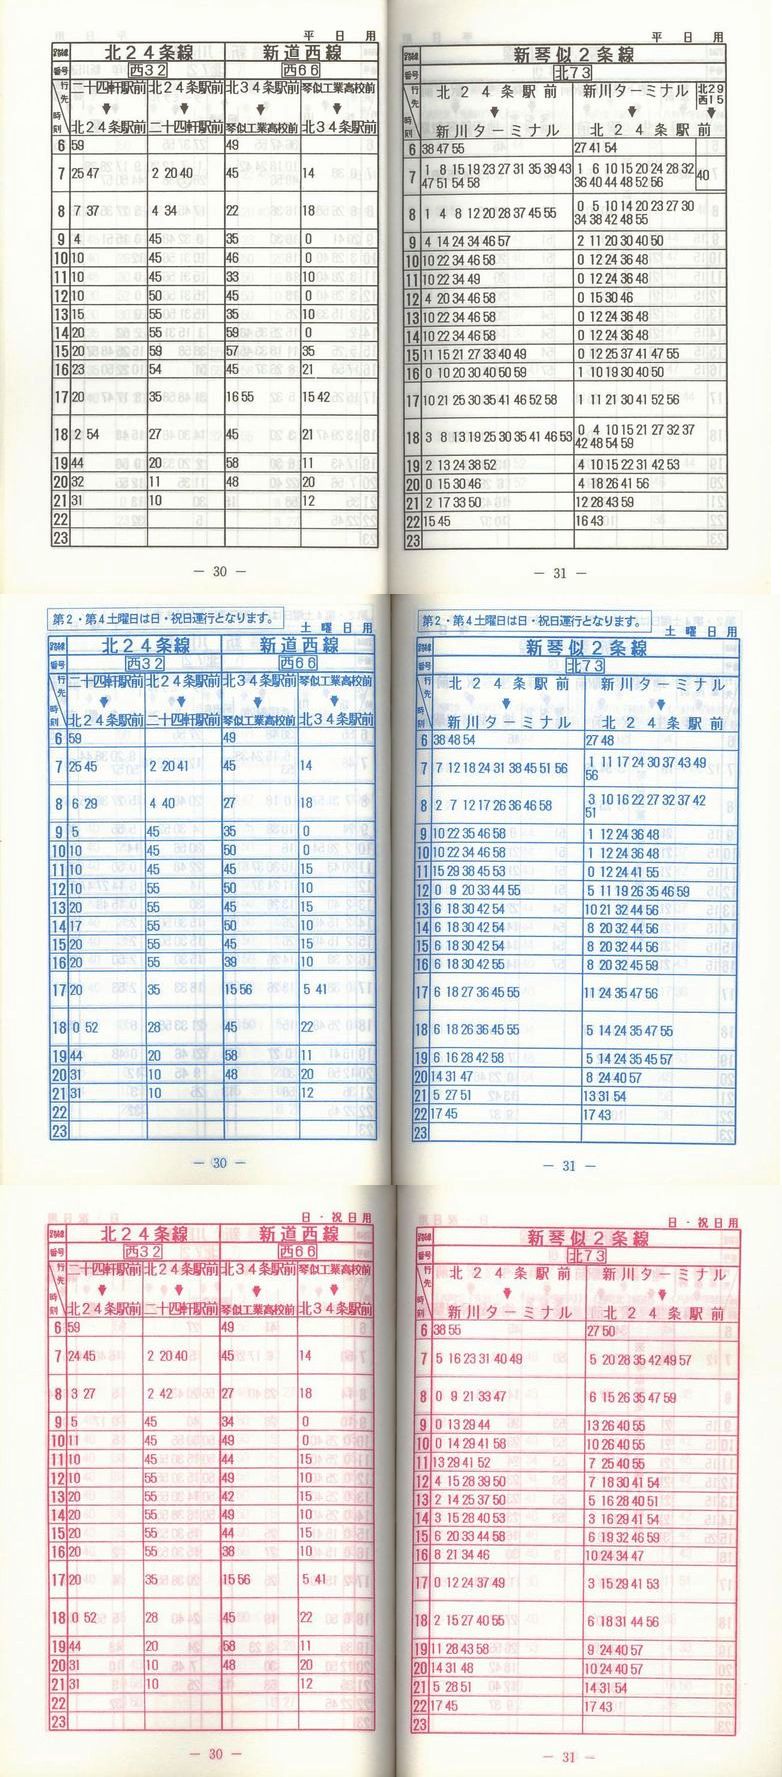 平日用
路線 北２４条線 新道西線
番号 西３２ 西６６
行先 時刻 二十四軒駅前 北２４条駅前 北３４条駅前 琴似工業高校前
北２４条駅前 二十四軒駅前 琴似工業高校前 北３４条駅前
6 59 49
7 25 47 2 20 40 45 14
8 7 37 4 34 22 18
9 4 45 35 0
10 10 45 46 0
11 10 45 33 10
12 10 50 45 0
13 15 55 35 10
14 20 55 59 0
15 20 59 57 35
16 23 54 45 21
17 20 35 16 55 15 42
18 2 54 27 45 21
19 44 20 58 11
20 32 11 48 20
21 31 10 12
22
23
― 30 ―
平日用
路線 新琴似２条線
番号 北７３
行先 時刻 北２４条駅前 新川ターミナル 北２９西１５
新川ターミナル 北２４条駅前
6 38 47 55 27 41 54
7 1 8 15 19 23 27 31 35 39 43 1 6 10 15 20 24 28 32 40
47 51 54 58 36 40 44 48 52 56
8 1 4 8 12 20 28 37 45 55 0 5 10 14 20 23 27 30
34 38 42 48 55
9 4 14 24 34 46 57 2 11 20 30 40 50
10 10 22 34 46 58 0 12 24 36 48
11 10 22 34 49 0 12 24 36 48
12 4 20 34 46 58 0 15 30 46
13 10 22 34 46 58 0 12 24 36 48
14 10 22 34 46 58 0 12 24 36 48
15 11 15 21 27 33 40 49 0 12 25 37 41 47 55
16 0 10 20 30 40 50 59 1 10 19 30 40 50
17 10 21 25 30 35 41 46 52 58 1 11 21 30 41 52 56
18 3 8 13 19 25 30 35 41 46 53 0 4 10 15 21 27 32 37
42 48 54 59
19 2 13 24 38 52 4 10 15 22 31 42 53
20 0 15 30 46 4 18 26 41 56
21 2 17 33 50 12 28 43 59
22 15 45 16 43
23
― 31 ―
第２・第４土曜日は日・祝日運行となります。
土曜日用
路線 北２４条線 新道西線
番号 西３２ 西６６
行先 時刻 二十四軒駅前 北２４条駅前 北３４条駅前 琴似工業高校前
北２４条駅前 二十四軒駅前 琴似工業高校前 北３４条駅前
6 59 49
7 25 45 2 20 41 45 14
8 6 29 4 40 27 18
9 5 45 35 0
10 10 45 50 0
11 10 45 45 15
12 10 55 50 10
13 20 55 45 15
14 17 55 50 10
15 20 55 45 15
16 20 55 39 10
17 20 35 15 56 5 41
18 0 52 28 45 22
19 44 20 58 11
20 31 10 48 20
21 31 10 12
22
23
― 30 ―
第２・第４土曜日は日・祝日運行となります。
土曜日用
路線 新琴似２条線
番号 北７３
行先 時刻 北２４条駅前 新川ターミナル
新川ターミナル 北２４条駅前
6 38 48 54 27 48
7 7 12 18 24 31 38 45 51 56 1 11 17 24 30 37 43 49
56
8 2 7 12 17 26 36 46 58 3 10 16 22 27 32 37 42
51
9 10 22 35 46 58 1 12 24 36 48
10 10 22 34 46 58 1 12 24 36 48
11 15 29 38 45 53 0 12 24 41 55
12 0 9 20 33 44 55 5 11 19 26 35 46 59
13 6 18 30 42 54 10 21 32 44 56
14 6 18 30 42 54 8 20 32 44 56
15 6 18 30 42 54 8 20 32 44 56
16 6 18 30 42 55 8 20 32 45 59
17 6 18 27 36 45 55 11 24 35 47 56
18 6 18 26 36 45 55 5 14 24 35 47 55
19 6 16 28 42 58 5 14 24 35 45 57
20 14 31 47 8 24 40 57
21 5 27 51 13 31 54
22 17 45 17 43
23
― 31 ―
日・祝日用
路線 北２４条線 新道西線
番号 西３２ 西６６
行先 時刻 二十四軒駅前 北２４条駅前 北３４条駅前 琴似工業高校前
北２４条駅前 二十四軒駅前 琴似工業高校前 北３４条駅前
6 59 49
7 24 45 2 20 40 45 14
8 3 27 2 42 27 18
9 5 45 34 0
10 11 45 49 0
11 10 45 44 15
12 10 55 49 10
13 20 55 42 15
14 20 55 49 10
15 20 55 44 15
16 20 55 38 10
17 20 35 15 56 5 41
18 0 52 28 45 22
19 44 20 58 11
20 31 10 48 20
21 31 10 12
22
23
― 30 ―
日・祝日用
路線 新琴似２条線
番号 北７３
行先 時刻 北２４条駅前 新川ターミナル
新川ターミナル 北２４条駅前
6 38 55 27 50
7 5 16 23 31 40 49 5 20 28 35 42 49 57
8 0 9 21 33 47 6 15 26 35 47 59
9 0 13 29 44 13 26 40 55
10 0 14 29 41 58 10 26 40 55
11 13 29 41 52 7 25 40 55
12 4 15 28 39 50 7 18 30 41 54
13 2 14 25 37 50 5 16 28 40 51
14 3 15 28 40 53 3 16 29 41 54
15 6 20 33 44 58 6 19 32 46 59
16 8 21 34 46 10 24 34 47
17 0 12 24 37 49 3 15 29 41 53
18 2 15 27 40 55 6 18 31 44 56
19 11 28 43 58 9 24 40 57
20 14 31 48 10 24 40 57
21 5 28 51 14 31 54
22 17 45 17 43
23
― 31 ―